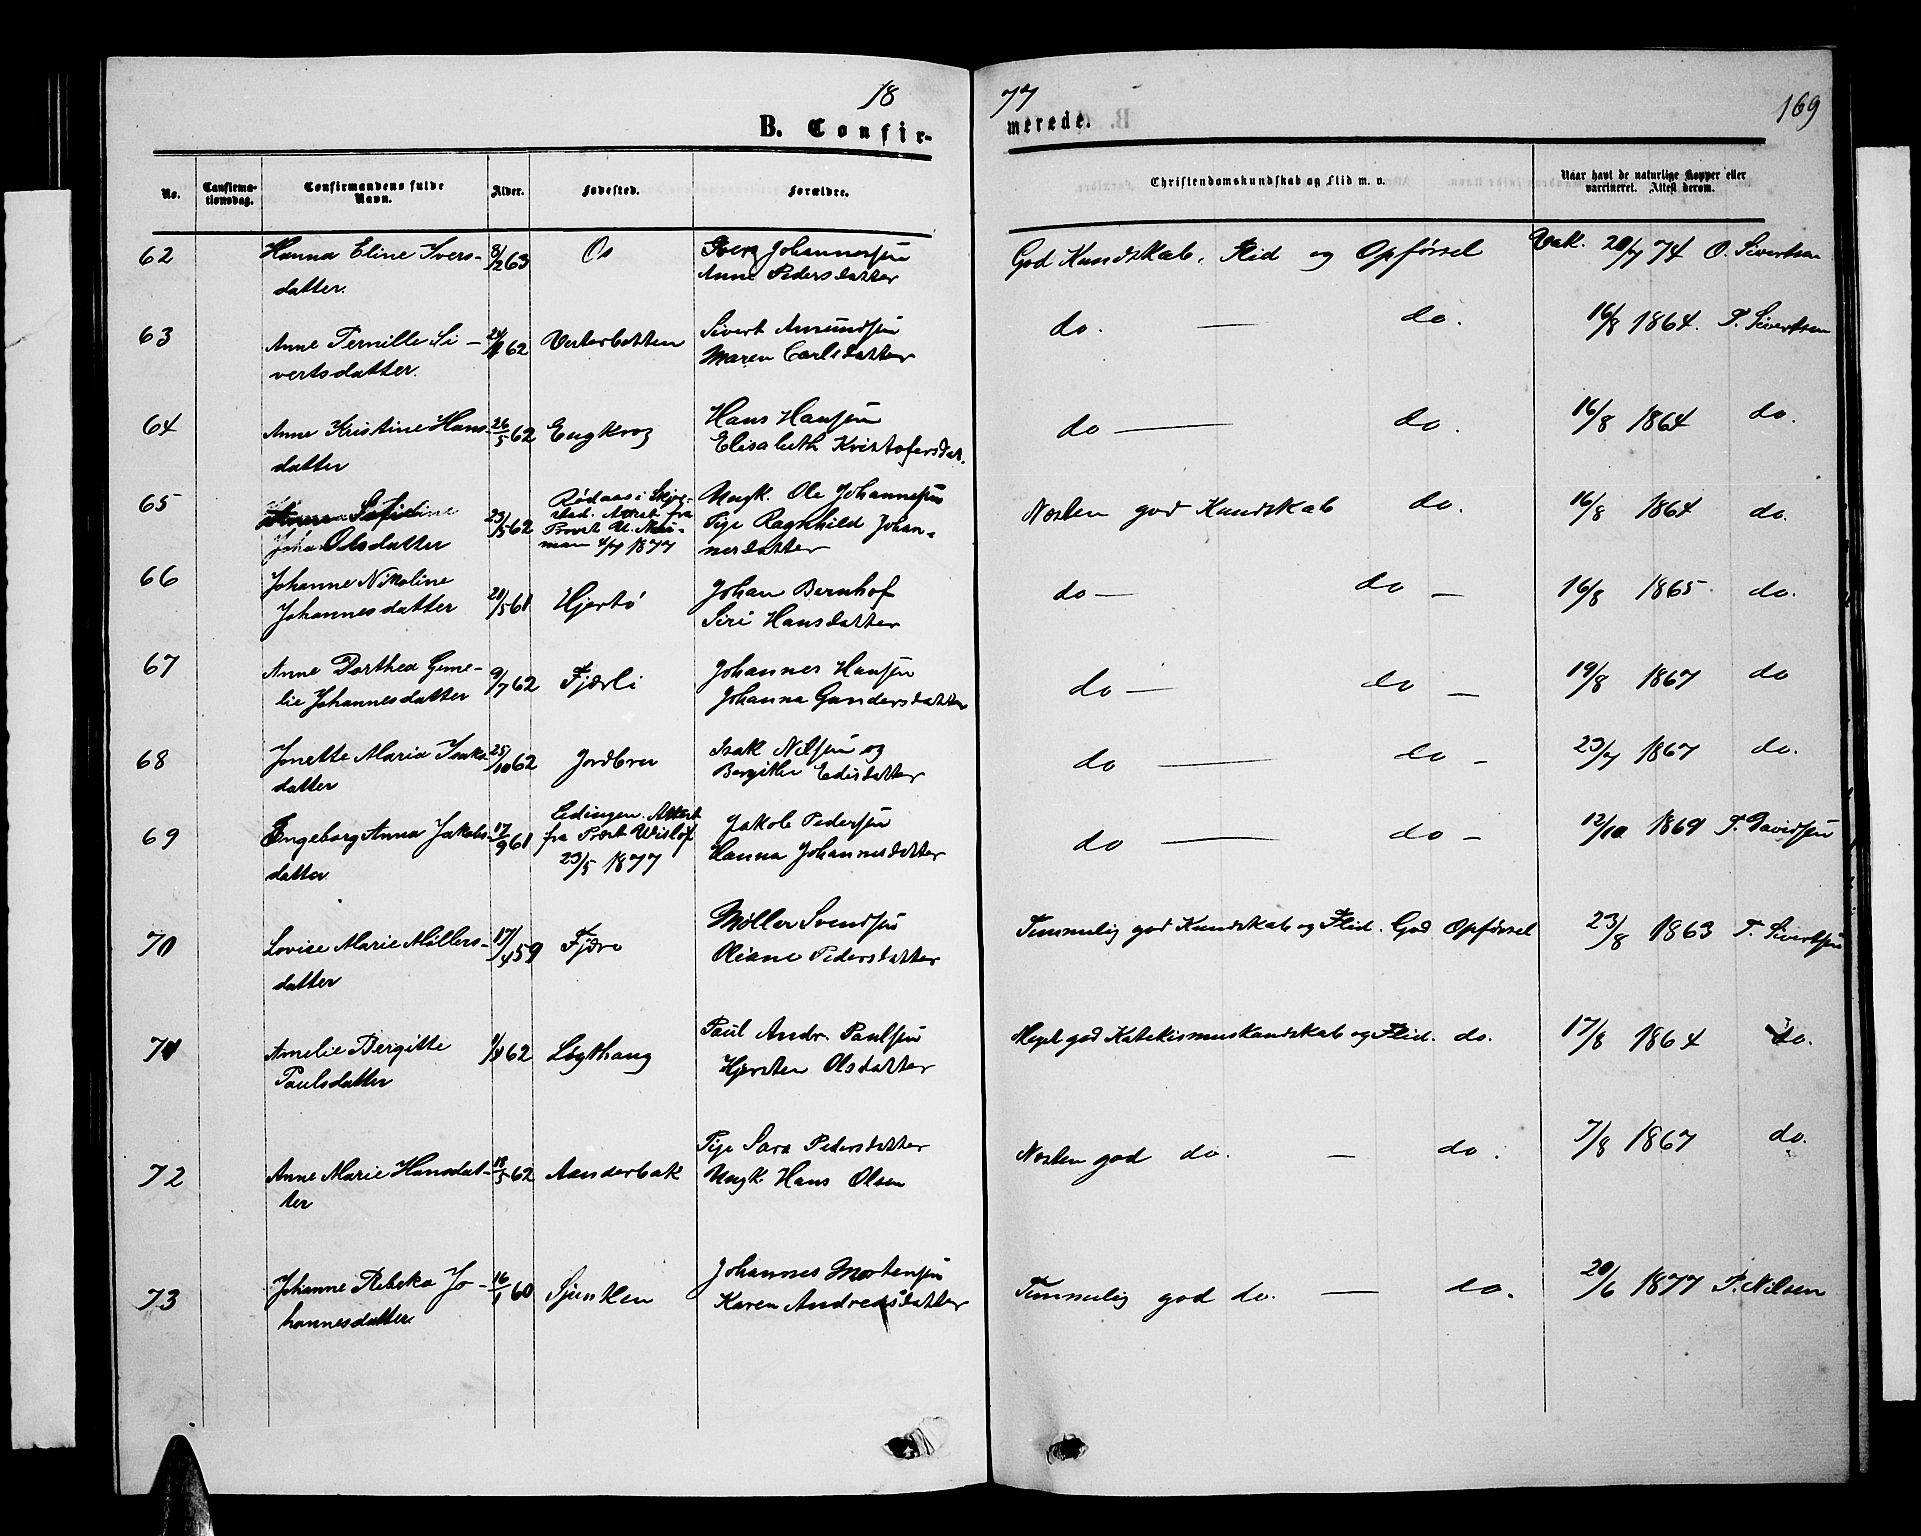 18 77 169
B. Confir- merede.
No. Confirma-tionsdag. Confirmandens fulde Navn. Alder. Fødested. Forældre. Christendomskundskab og Flid m. v. Naar havt de naturlige Kopper eller vaccineret. Attest derom.
62 Hanna Eline Ivers- 8/2 63 Os Iver Johannesen God Kundskab, Flid og Opførsel Vak. 20/7 74 O. Sivertsen
datter. Anne Pedersdatter
63 Anne Pernille Si- 62 Vesterbotten Sivert Amundsen do. — do. 16/8 1864. P. Sivertsen
vertsdatter. Maren Carlsdatter
64 Anne Kristine Hans- 26/5 62 Engkrog Hans Hansen do — do. 16/8 1864 do.
datter Elisabeth Kristofersdat.
65 23/5 62 Rødaas i Skjer-stad. Attest fra Provst U. Neu-man 4/7 1877 Ungk. Ole Johannesen Næsten god Kundskab do. 16/8 1864 do.
Olsdatter Pige Ragnhild Johan-
nesdatter
66 Johanne Nikoline 20/5 61 Hjertø Johan Bernhof do — do — 16/8 1865 do.
Johannesdatter Siri Hansdatter
67 Anne Dorthea Eme- 9/7 62 Fjærli Johannes Hansen do — do — 19/8 1867 do
lie Johannesdatter Johanna Gundersdatter
68 Jonette Maria Isaks 25/10 62 Jordbru Isak Nilsen og do — do — 23/7 1867 do.
datter Bergitha Edisdatter
69 Engeborg Anna Jakobs- 17/9 61 Lødingen. Attest fra Præst Wisløf 23/5 1877 Jakob Pedersen do — do — 12/10 1869 P. Davidsen
datter Hanna Johannesdatter
70 Lovise Marie Møllers- 17/4 59 Fjære Møller Svendsen Temmelig god Kundskab og Flid. God Opførsel 23/8 1863 P. Sivertsen
datter Oliane Pedersdatter
71 Amelie Bergitte 62 Løgthaug Paul Andr. Paulsen Meget god Katekismuskundskab og Flid. do. 17/8 1864 do.
Paulsdatter Kjersten Olsdatter
72 Anne Marie Hansdat- 18/5 62 Aanderbak Pige Sara Pedersdatter Næsten god do. — do. 7/8 1867 do.
ter Ungk Hans Olsen
73 Johanne Rebeka Jo- 16/1 60 Sjunken Johannes Mortensen Temmelig god do. — do. 20/6 1877 P. Nilsen
hannesdatter Karen Andreasdatter